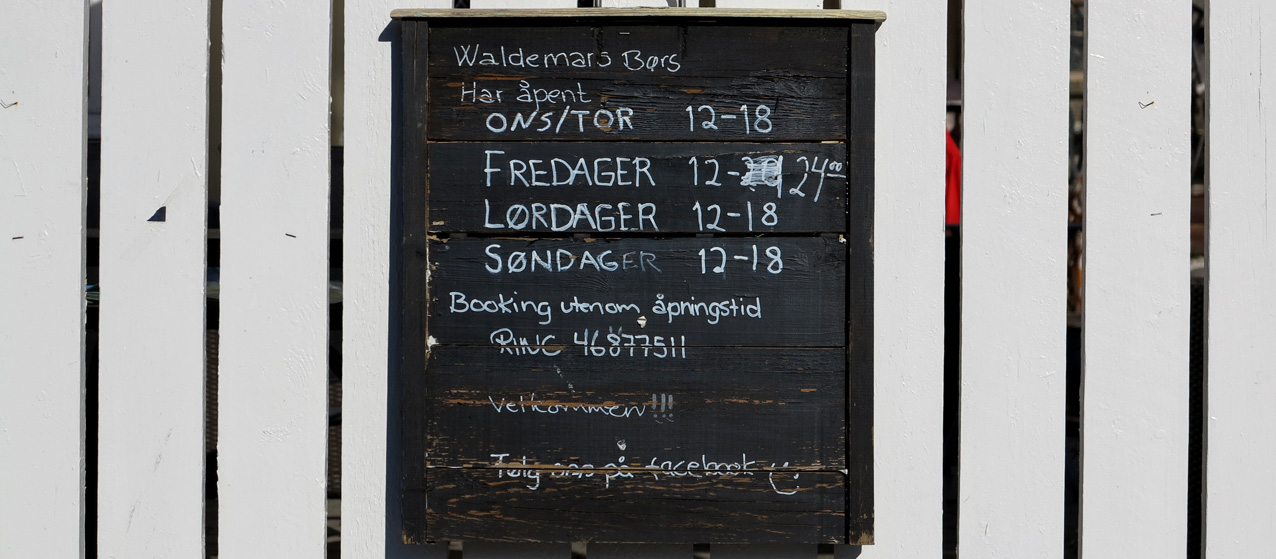 Waldemars Børs
Har åpent
ONS/TOR 12-18
FREDAGER 12- 24⁰⁰
LØRDAGER 12-18
SØNDAGER 12-18
Booking utenom åpningstid
RING 46877511
Velkommen!!!
Følg oss på facebook :)